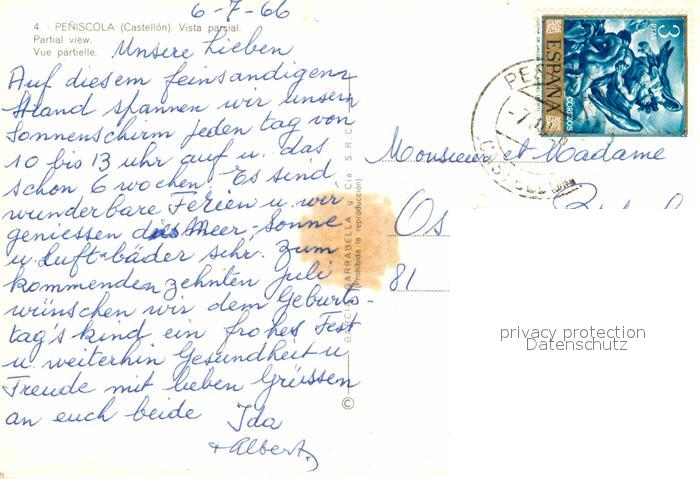 6-7-66
4. - PEÑISCOLA (Castellón). Vista parcial.
Partial view.
Vue partielle.
Unsere Lieben
Auf diesem feinsandigen
Strand spannen wir unsern
Sonnenschirm jeden tag von
10 bis 13 uhr auf u. das
schon 6 wochen. Es sind
wunderbare Ferien u. wir
geniessen Meer-, Sonne
u. Luft-bäder sehr. Zum
kommenden zehnten Juli
wünschen wir dem Geburts-
tag's kind ein frohes Fest
u. weiterhin Gesundheit u
Freude mit lieben Grüssen
an euch beide Ida
+ Albert
© GARCIA GARRABELLA y Cia. S.R.C.
(Prohibida la reproducción)
3 PTAS
ESPAÑA
CORREOS
Monsieur et Madame
Os
81
privacy protection
Datenschutz